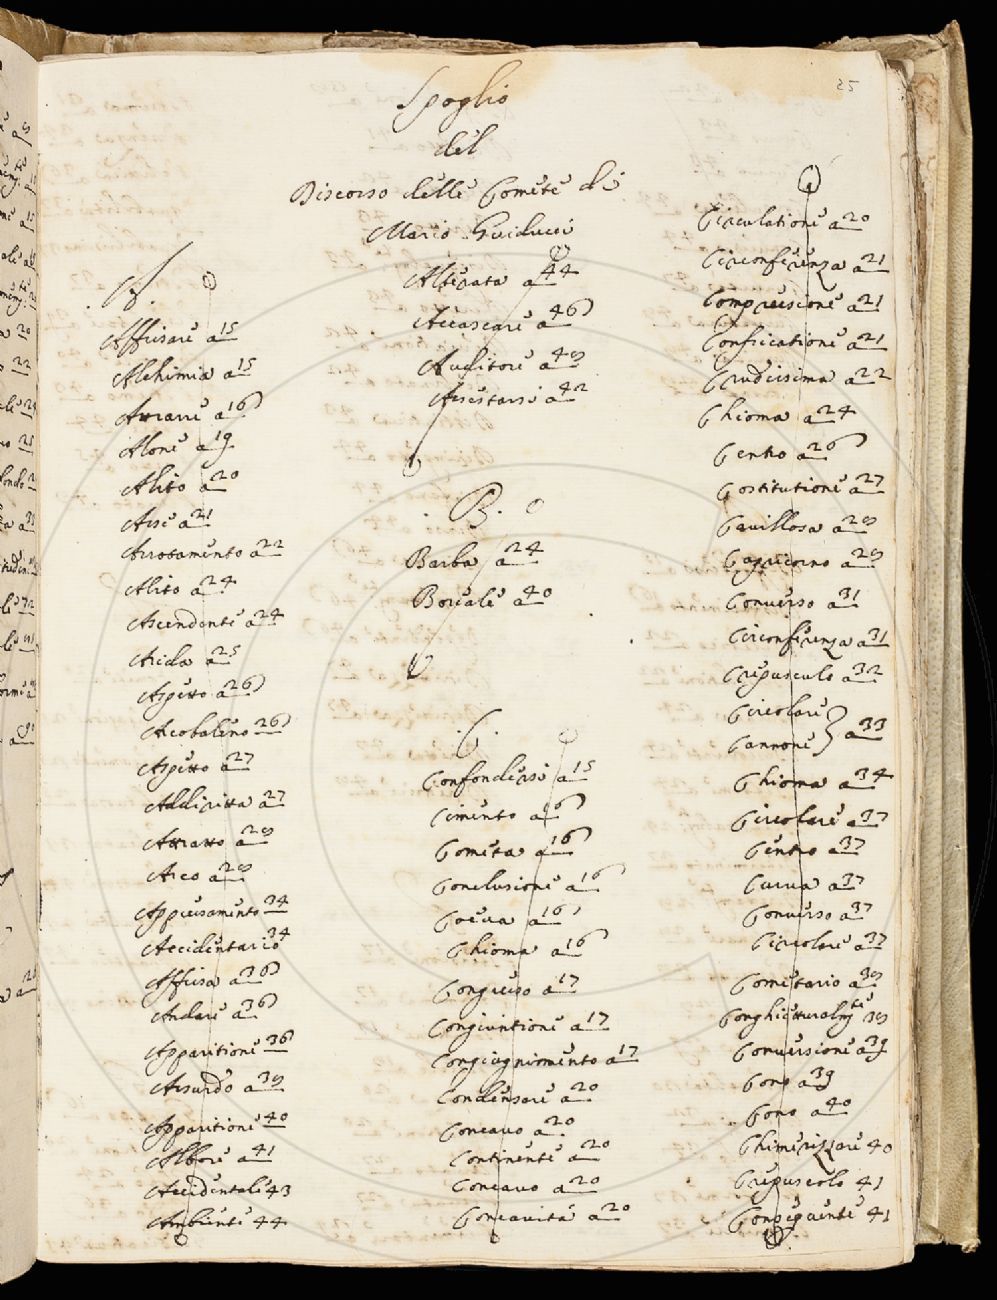 25
Spoglio
del
Discorso delle Comete di
Mario Guiducci
A.
Affisare a 15
Alchimia a 15
Attrarre a 16
Alone a 19
Alito a 20
Arse a 21
Arrotamento a 22
Alito a 24
Ascendente a 24
Arida a 25
Aspetto a 26
Arcobaleno 26
Aspetto a 27
Addiritta a 27
Attratto a 28
Arco a 28
Appressamento 34
Accidentario 34
Affissa a 36
Andare a 36
Apparitione 36
Assurdo a 38
Apparitione 40
Albore a 41
Accidentale 43
Ambiente 44
Alterata a 44
Accascare a 46
Auditore a 48
Accestarsi a 42
B.
Barba a 24
Boreale a 40
C.
Confondersi a 15
Cimento a 16
Cometa a 16
Conclusione a 16
Coeva a 16
Chioma a 16
Congresso a 17
Congiuntione a 17
Congiugnimento a 17
Condensare a 20
Concavo a 20
Continente a 20
Concavo a 20
Concavità a 20
Circulatione a 20
Circonferenza a 21
Compressione a 21
Conficcatione a 21
Crudissima a 22
Chioma a 24
Centro a 26
Costitutione a 27
Cavillosa a 28
Capricorno a 28
Converso a 31
Circonferenza a 31
Crepusculo a 32
Circolare
Cannone } a 33
Chioma a 34
Circolare a 37
Centro a 37
Curva a 37
Converso a 37
Circolare a 37
Cometario a 38
Conghietturalmte 38
Conversione a 39
Cono a 39
Cono a 40
Chimerizzare 40
Crepuscolo 41
Conseguente 41